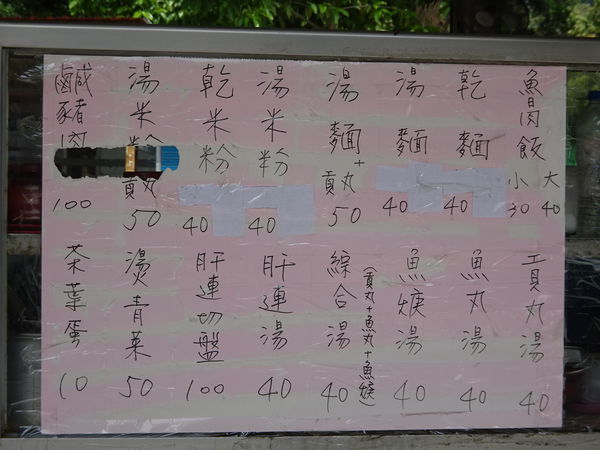 魯肉飯 小30 大40
乾麵 40
湯麵 40
湯麵+貢丸 50
湯米粉 40
乾米粉 40
湯米粉 貢丸 50
鹹豬肉 100
貢丸湯 40
魚丸湯 40
魚焿湯 40
(貢丸+魚丸+魚焿)
綜合湯 40
肝連湯 40
肝連切盤 100
燙青菜 50
茶葉蛋 10